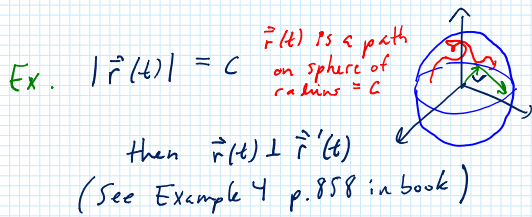 Ex. |r⃗(t)| = C
r⃗(t) is a path
on sphere of
radius = C
then r⃗(t) ⊥ r⃗'(t)
(See Example 4 p.858 in book)